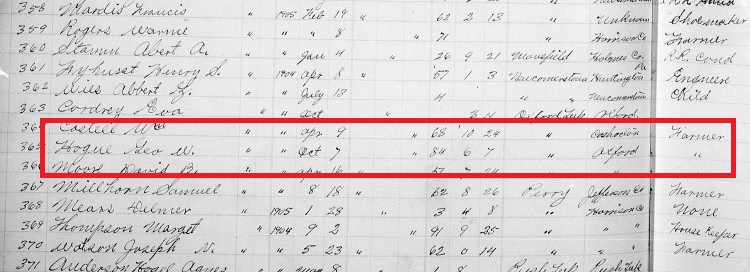 358 Mardis Francis " 1905 Feb 19 " 62 2 13 " Unknown Shoesmaker
359 Rogers Warnie " " " 8 " 71 Harrison Co Farmer
360 Stamm Abert A. " " Jan 4 " 26 9 21 Mansfield Holmes Co. R.R. Cond
361 Henry S. " 1904 Apr 8 " 57 1 3 Newcomerstown Huntington Pa
362 Abbert " " July 13 4 " Newcomerstown Child
363 Cordrey Eva " " Oct Oxford
364 " " Apr 9 " 68 10 24 " Coshocton Farmer
365 Hogue Geo W. " " Oct 7 " 84 6 7 " Oxford "
366 Moore David B. " " Apr 16 " 57 7 24
367 Millhorn Samuel " " 8 18 " 62 8 26 Perry Jefferson Co Farmer
368 Means Delmer " 1905 1 28 " 3 4 8 " Harrison Co None
369 Thompson Marget " 1904 9 2 " 91 9 25 " " House Keeper
370 Watson Joseph N. " " 5 23 " 62 0 14 " " Farmer
371 Anderson Agnes 8 Rush